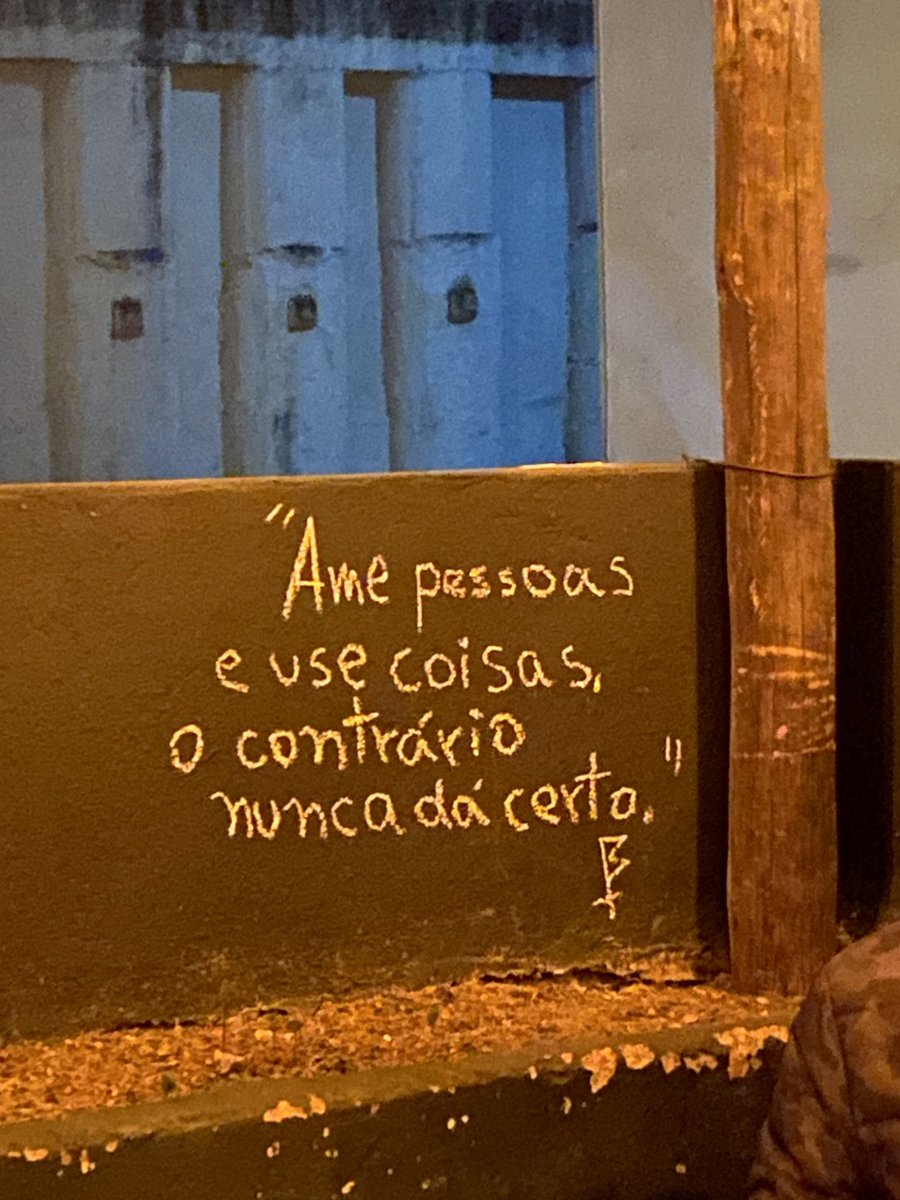 "Ame pessoas
e use coisas,
o contrário
nunca dá certo."